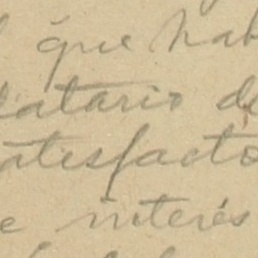 que hab
latario de
atisfacto
e interés